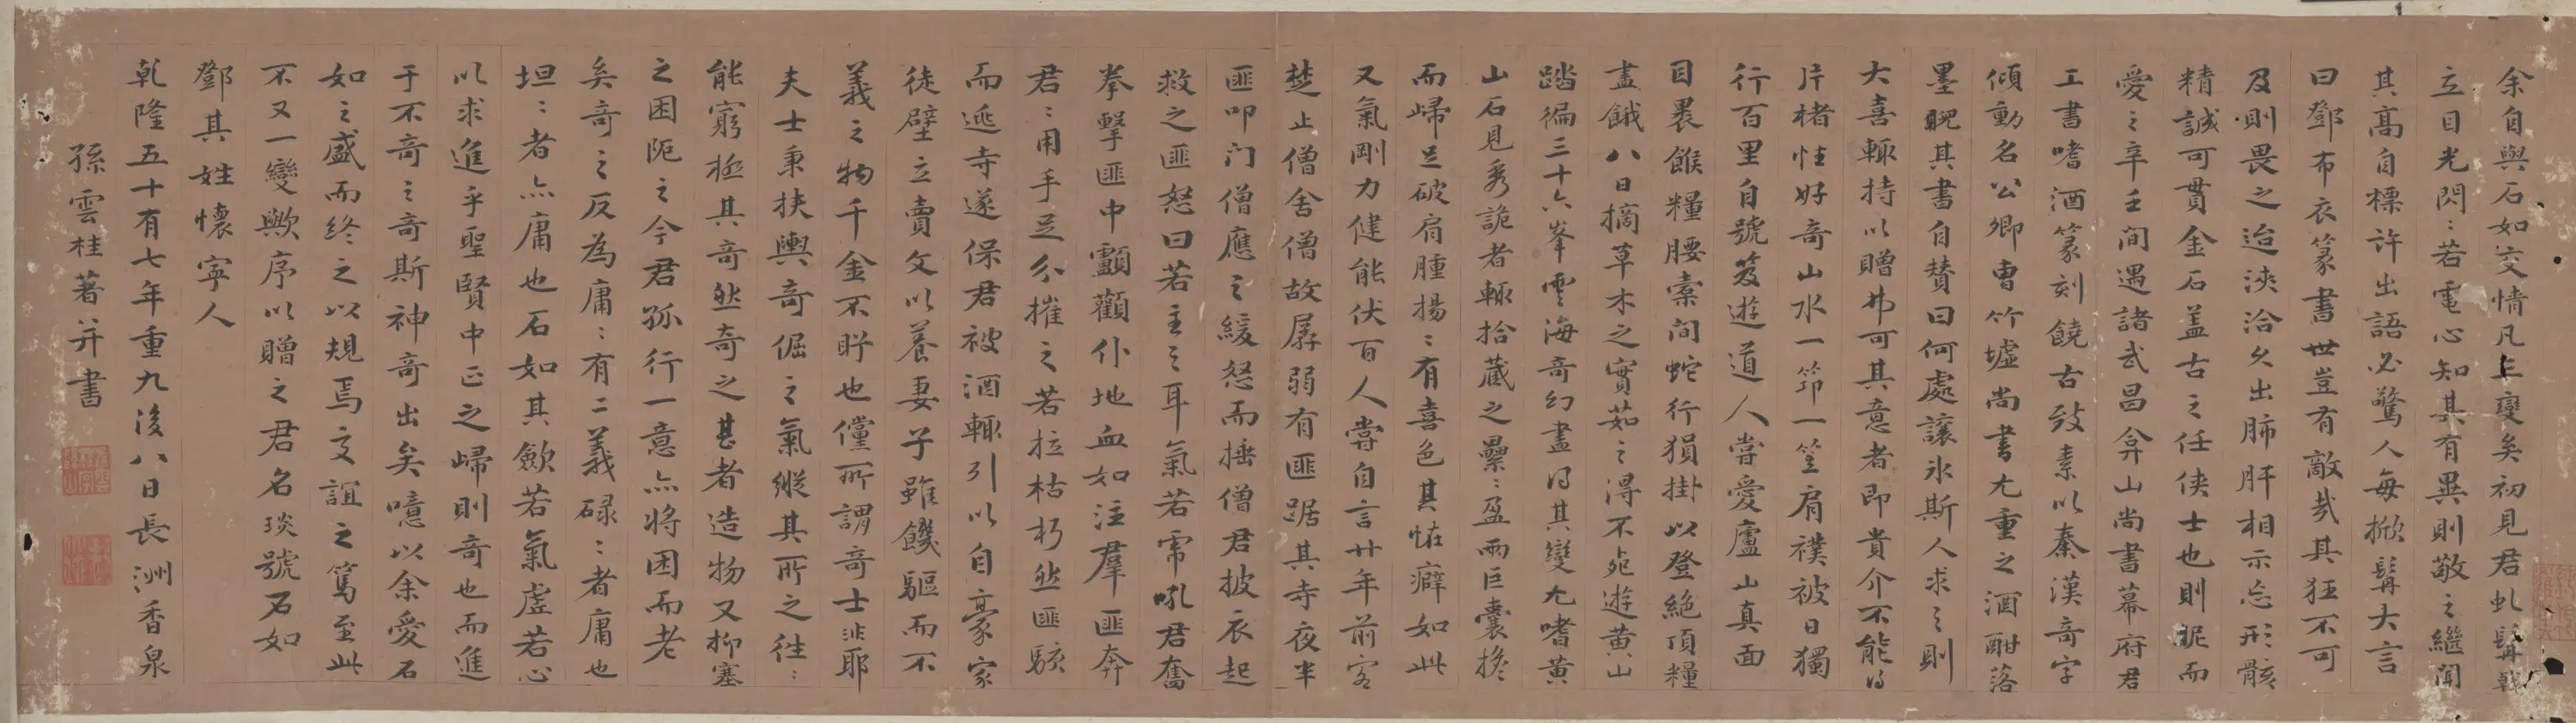 余自與石如交情凡三變矣初見君虬髯戟
立目光閃〻若電心知其有異則敬之繼聞
其高自標許出語必驚人每掀髯大言
曰鄧布衣篆書世豈有敵哉其狂不可
及則畏之迨浹洽久出肺肝相示忘形骸
精誠可貫金石蓋古之任俠士也則昵而
愛之辛壬間遇諸武昌弇山尚書幕府君
工書嗜酒篆刻饒古致素以秦漢奇字
傾動名公卿曹竹墟尚書尤重之酒酣落
墨睨其書自贊曰何處讓冰斯人求之則
大喜輒持以贈弗可其意者即貴介不能得
片楮性好奇山水一笻一笠肩襆被日獨
行百里自號笈遊道人嘗愛廬山真面
目裹餱糧腰橐間蛇行猿掛以登絕頂糧
盡餓八日摘草木之實茹之得不死遊黃山
踏徧三十六峯雲海奇幻盡得其變尤嗜黃
山石見秀詭者輒拾藏之纍〻盈兩巨囊擔
而歸足破肩腫揚〻有喜色其怪癖如此
又氣剛力健能伏百人嘗自言廿年前客
楚止僧舍僧故孱弱有匪踞其寺夜半
匪叩门僧應之緩怒而捶僧君披衣起
救之匪怒曰若主之耳氣若虎吼君奮
拳擊匪中顱顴仆地血如注羣匪奔
君〻用手足分摧之若拉枯朽然匪駭
而遁寺遂保君被酒輒引以自豪家
徒壁立賣文以養妻子雖饑驅而不
義之物千金不眄也儻所謂奇士非耶
夫士秉扶輿奇倔之氣縱其所之往〻
能窮極其奇然奇之甚者造物又抑塞
之困阨之今君孤行一意亦將困而老
矣奇之反為庸〻有二義碌〻者庸也
坦〻者亦庸也石如其歛若氣虛若心
以求進乎聖賢中正之歸則奇也而進
于不奇之奇斯神奇出矣噫以余愛石
如之盛而終之以規焉交誼之篤至此
不又一變歟序以贈之君名琰號石如
鄧其姓懷寧人
乾隆五十有七年重九後八日長洲香泉
孫雲桂著并書